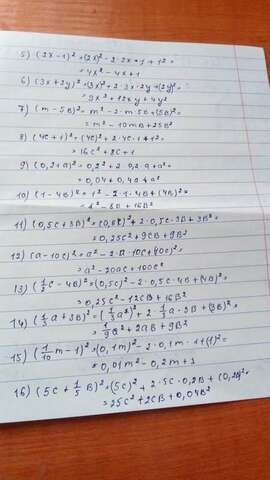 5) (2x-1)²=(2x)²-2·2x·1+1²=
=4x²-4x+1
6) (3x+2y)²=(3x)²+2·3x·2y+(2y)²=
=9x²+12xy+4y²
7) (m-5в)²=m²-2·m·5в+(5в)²=
=m²-10mв+25в²
8) (4c+1)²=(4c)²+2·4c·1+1²=
16c²+8c+1
9) (0,2+a)²=0,2²+2·0,2·a+a²=
=0,04+0,4a+a²
10) (1-4в)²=1²-2·1·4в+(4в)²=
-8в+16в²
11) (0,5c+3в)²=(0,5c)²+2·0,5c·3в+3в²=
=0,25c²+9cв+9в²
12) (a-10c)²=a²-2·a·10c+(10c)²=
=a²-20ac+100c²
13) (1/2c-4в)²=(0,5c)²-2·0,5c·4в+(4в)²=
=0,25c²-12cв+16в²
14) (1/3a+3в)²=(1/3a)²+2·1/3a·3в+(3в)²=
=1/9a²+2aв+9в²
15) (1/10m-1)²=(0,1m)²-2·0,1m·1+(1)²=
=0,01m²-0,2m+1
16) (5c+1/5в)²=(5c)²+2·5c·0,2в+(0,2в)²=
=25c²+2cв+0,04в²